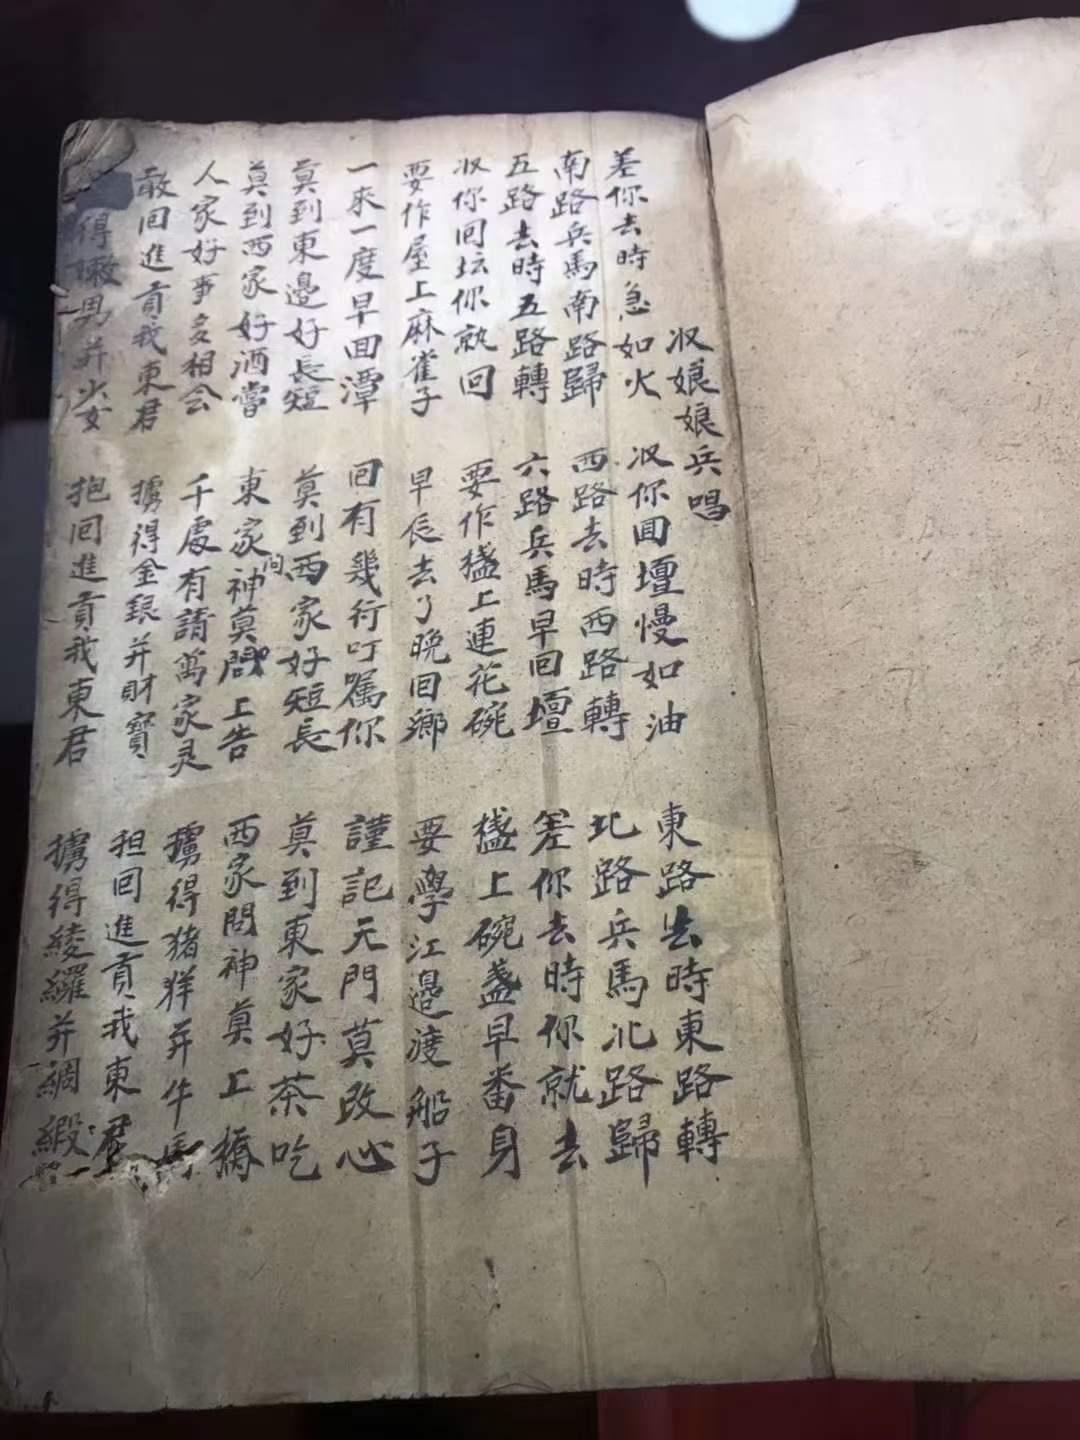 収娘娘兵唱
差你去時急如火 収你囬壇慢如油 東路去時東路轉
南路兵馬南路歸 西路去時西路轉 北路兵馬北路歸
五路去時五路轉 六路兵馬早回壇 差你去時你就去
収你回坛你就回 要作盞上連花碗 盞上碗盞早番身
要作屋上麻雀子 早辰去了晚回鄉 要學江邉渡船子
一來一度早回潭 回有幾行叮嘱你 謹記天門莫改心
莫到東邊好長短 莫到西家好短長 莫到東家好茶吃
莫到西家好酒嘗 東家问神莫上告 西家問神莫上橋
人家好事多相会 千處有請萬家灵 擄得猪羊并牛馬
敢回進貢我東君 擄得金銀并財寳 担回進貢我東君
得嫩男并少女 抱回進貢我東君 擄得綾羅并綢緞